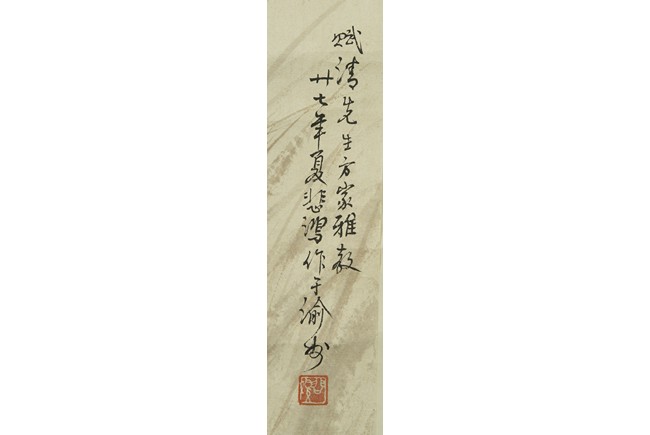 赋清先生方家雅教
廿七年夏悲鸿作于渝州